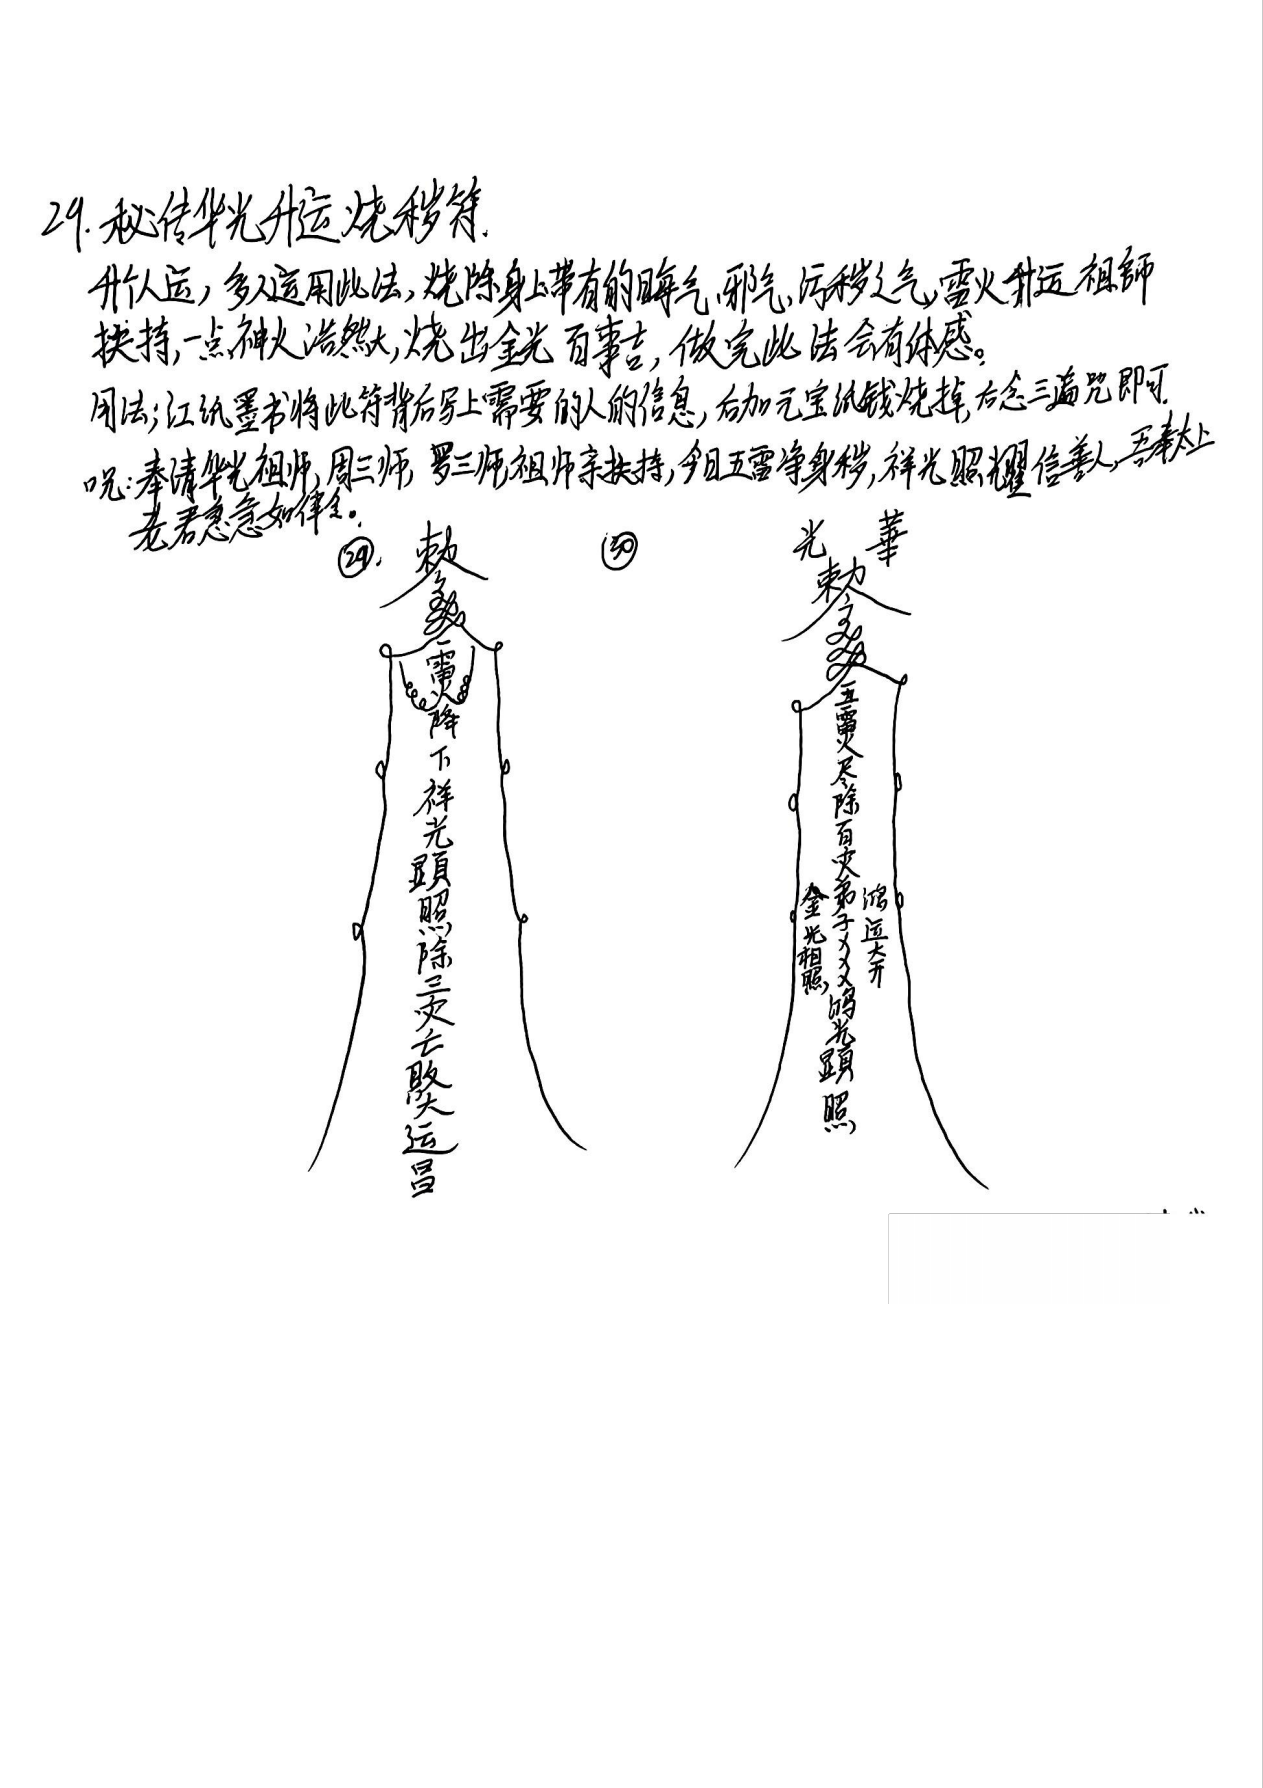 29.秘传华光升运烧秽符.
升个人运，多人运用此法，烧除身上带有的晦气、邪气、污秽之气，雷火升运祖師
扶持，一点神火浩然大，烧出金光百事吉，做完此法会有体感。
用法；江纸墨书将此符背后写上需要的人的信息，后加元宝纸钱烧掉，右念三遍咒即可.
咒：奉请华光祖师，周三师，罗三师，祖师亲扶持，今日五雷净身秽，祥光照耀信善人，吾奉太上
老君急急如律令。
29. 勅
雷火降下祥光顕照除三灾亡败大运昌
30
光 華
勅
五雷火尽除百灾弟子XXX鸿光顕照
鸿运大开
金光相照